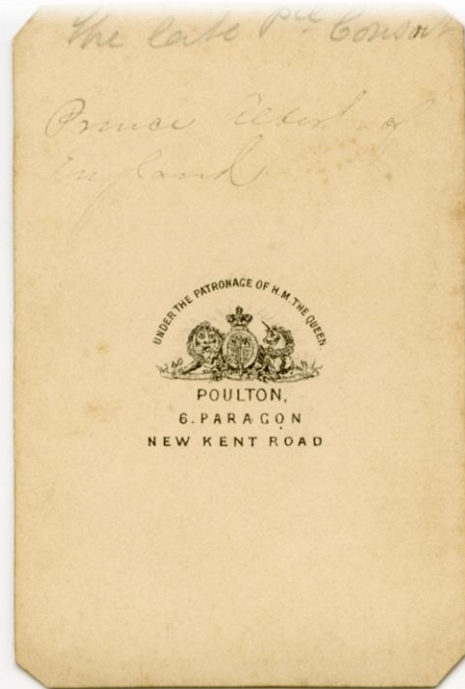 The late Pce Consort
Prince Albert of
England
UNDER THE PATRONAGE OF H.M. THE QUEEN.
POULTON,
6. PARAGON
NEW KENT ROAD